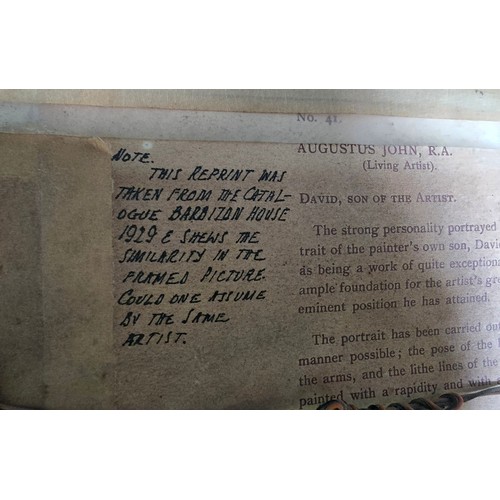 NOTE.
THIS REPRINT WAS
TAKEN FROM THE CATAL-
OGUE BARBIZON HOUSE
1929 & SHEWS THE
SIMILARITY IN THE
FRAMED PICTURE.
COULD ONE ASSUME
BY THE SAME
ARTIST.
No. 41.
AUGUSTUS JOHN, R.A.
(Living Artist).
DAVID, SON OF THE ARTIST.
The strong personality portrayed
trait of the painter's own son, Davi
as being a work of quite exception
ample foundation for the artist's gre
eminent position he has attained.
The portrait has been carried ou
manner possible; the pose of the
the arms, and the lithe lines of the
painted with a rapidity and with